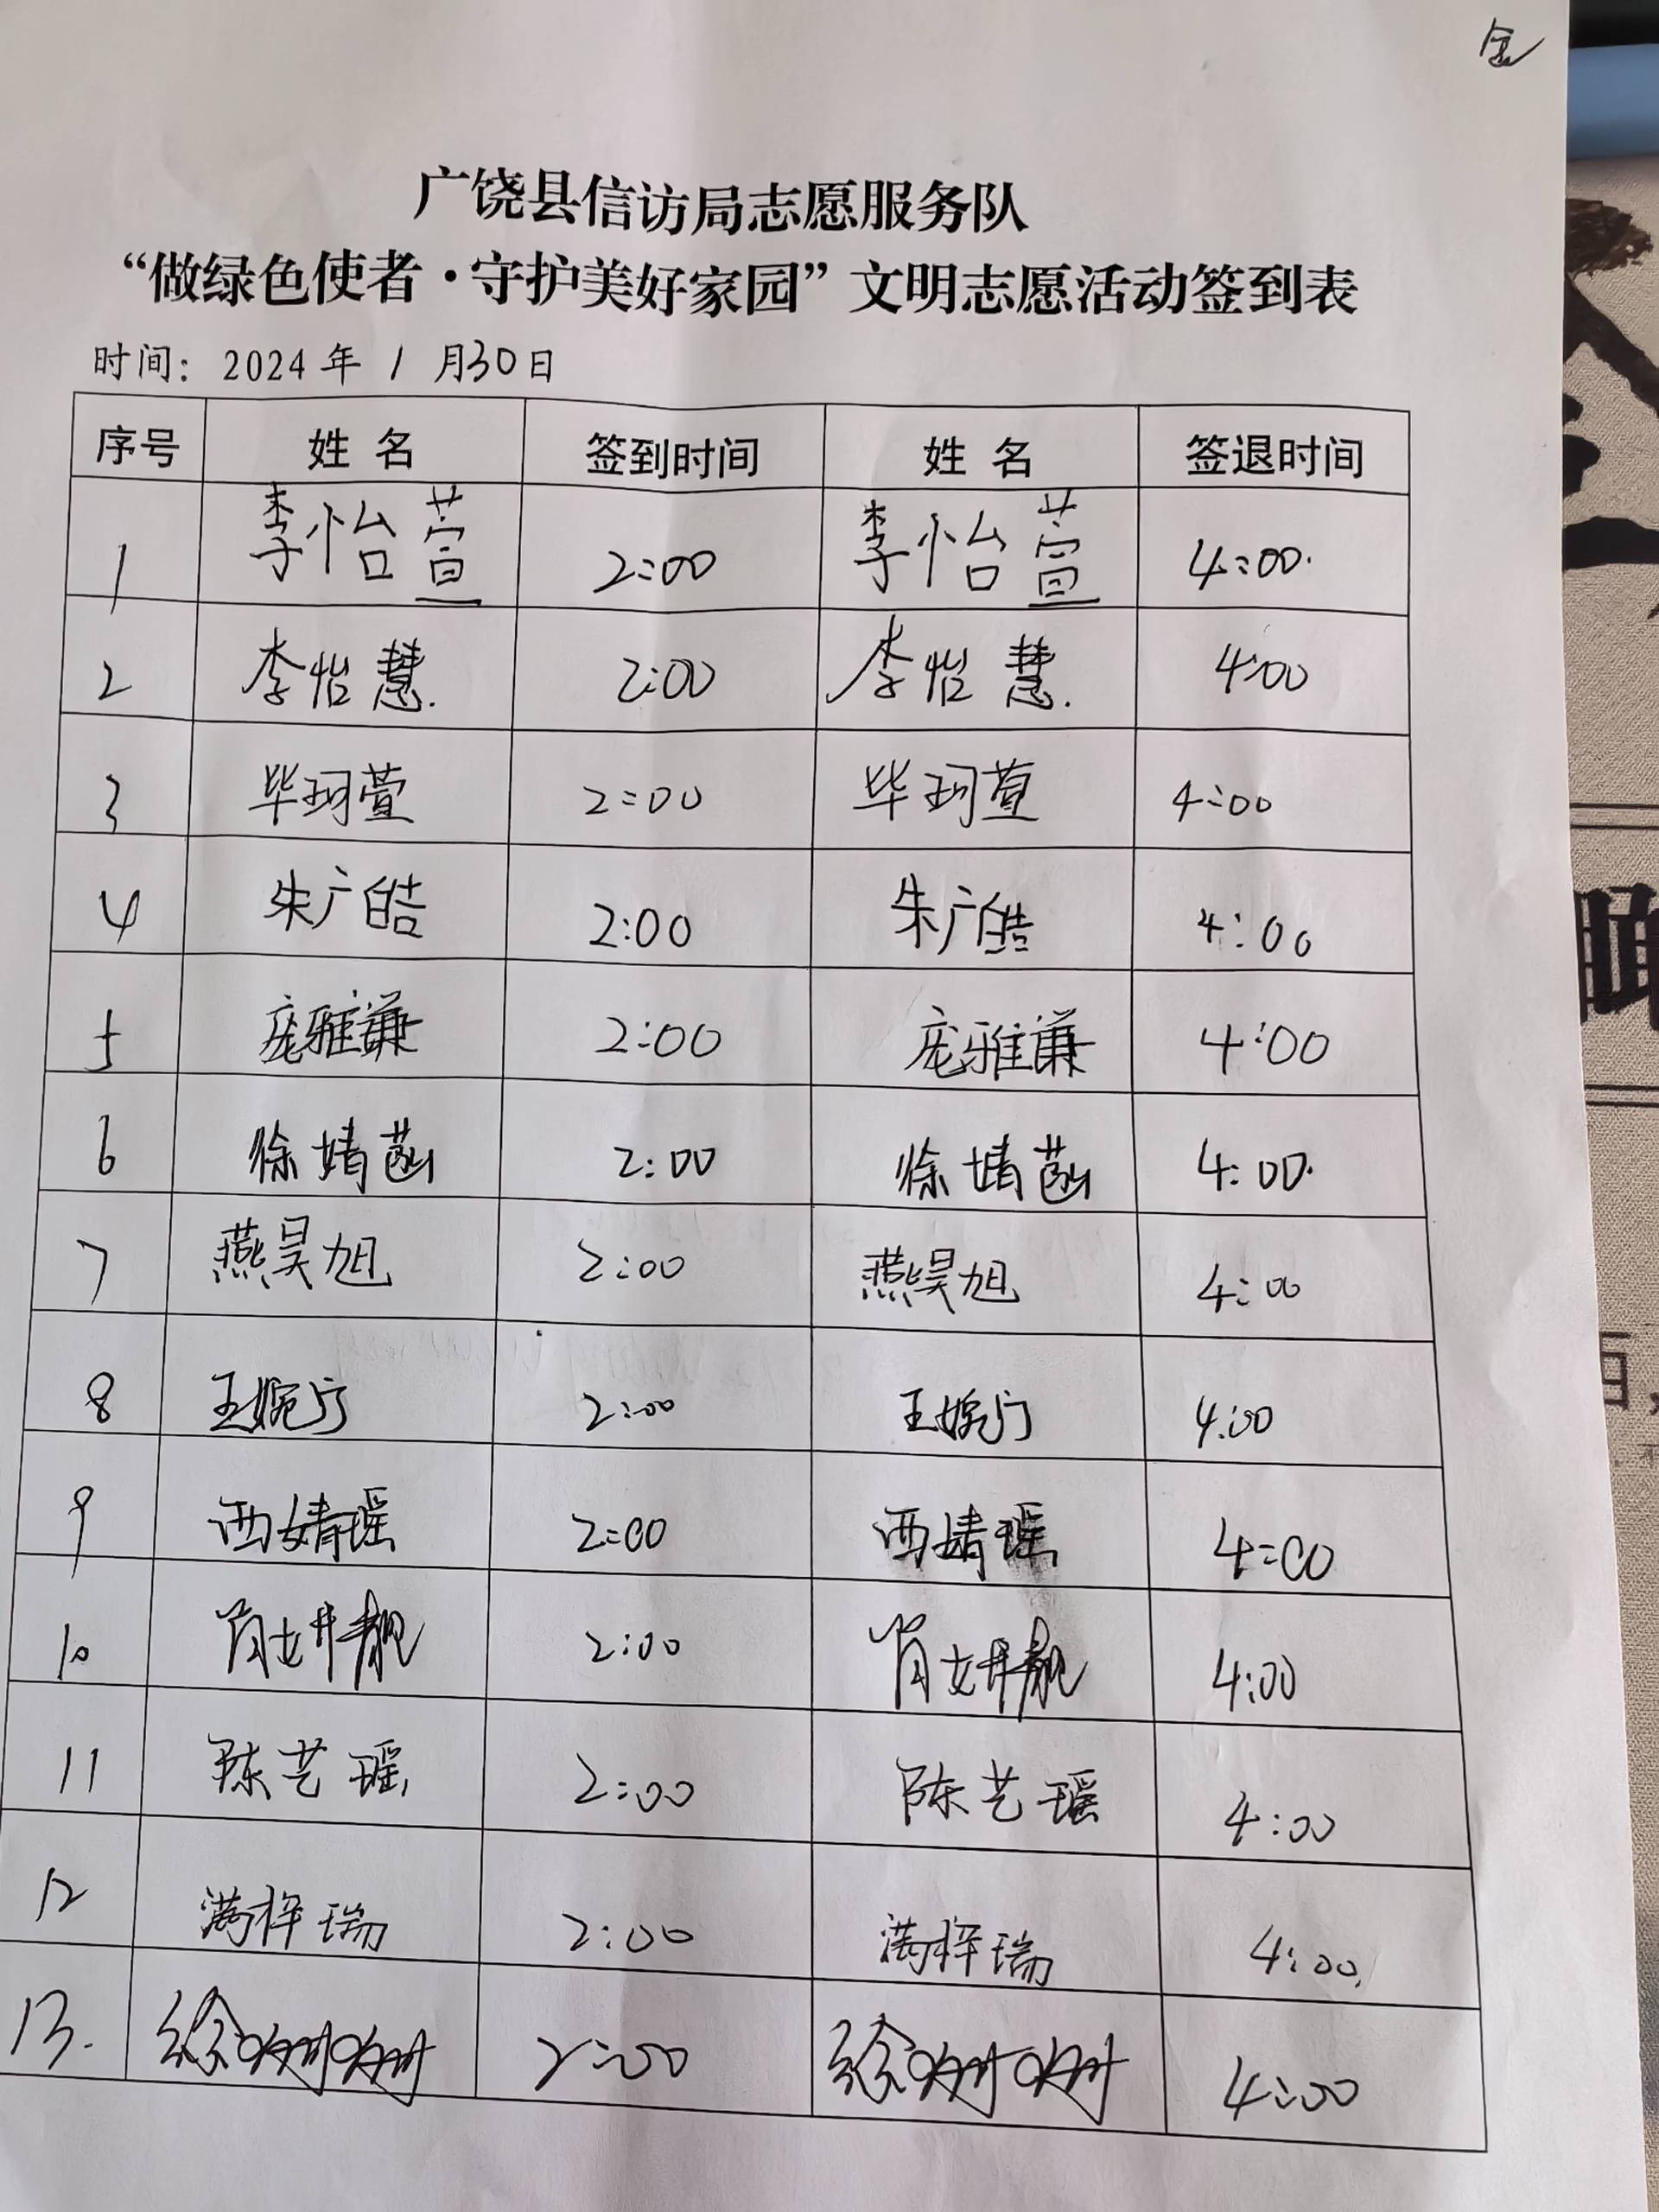 金
广饶县信访局志愿服务队
“做绿色使者·守护美好家园”文明志愿活动签到表
时间：2024年 1 月30日
序号 姓名 签到时间 姓名 签退时间
1 李怡萱 2:00 李怡萱 4:00.
2 李怡慧. 2:00 李怡慧. 4:00
3 毕珂萱 2:00 毕珂萱 4:00
4 朱广皓 2:00 朱广皓 4:00
5 庞雅谦 2:00 庞雅谦 4:00
6 徐婧菡 2:00 徐婧菡 4:00.
7 燕昊旭 2:00 燕昊旭 4:00
8 王婉宁 2:00 王婉宁 4:00
9 西婧瑶 2:00 西婧瑶 4:00
10 肖妍靓 2:00 肖妍靓 4:00
11 陈艺瑶 2:00 陈艺瑶 4:00
12 满梓瑞 2:00 满梓瑞 4:00.
13. 徐姗姗 2:00 徐姗姗 4:00